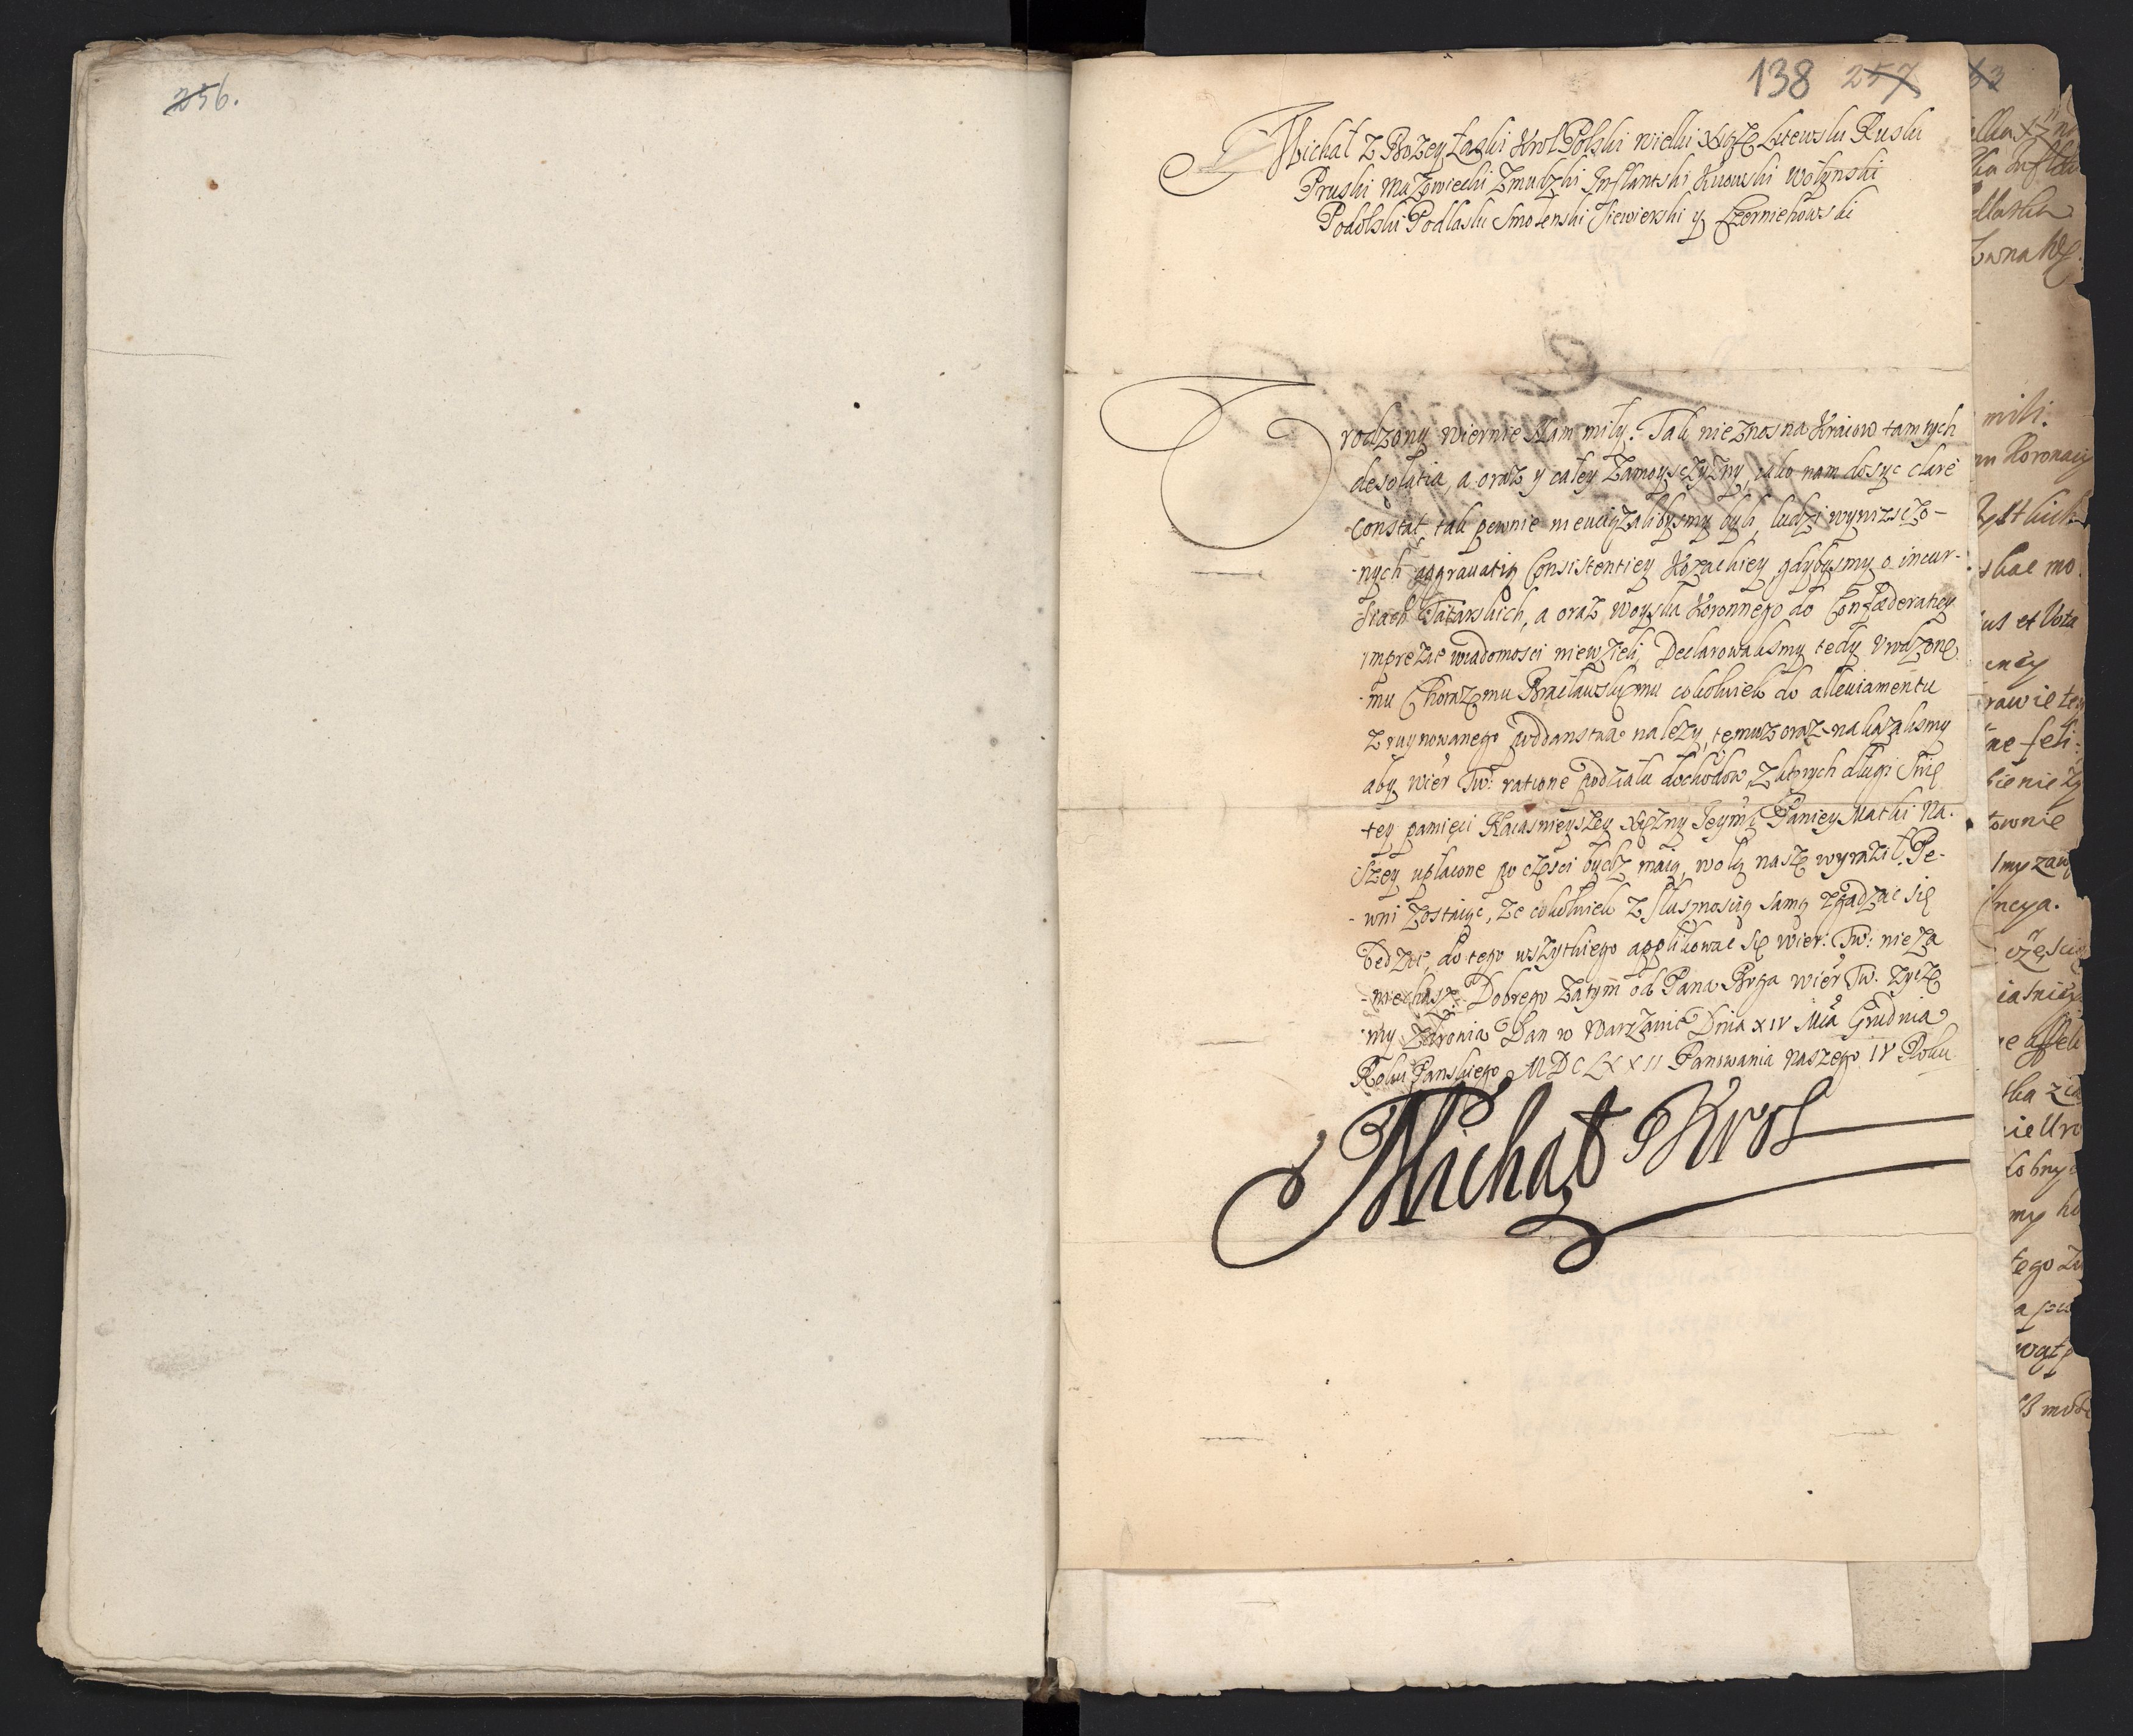 256.
138 257
Michał z Bozey Łaski Krol Polski Wielki Xiąze Litewski Ruski
Pruski Mazowiecki Zmudzki Inflantski Kiiowski Wołynski
Podolski Podlaski Smolenski Siewierski y Czerniehowski
Vrodzony wiernie Nam miły. Tak nieznosna Kraiow tamtych
desolatia, a oraz y całey Zamoysczyzny, iako nam dosyc clare
Constat, tak pewnie nieuciązalibysmy byli, ludzi wyniszczo-
-nych aggrauatią Consistentiey Kozackiey, gdybysmy o incur-
siach Tatarskich, a oraz Woyska Koronnego do Confæderatiey
imprezie wiadomosci niewzieli, Declarowalismy tedy Vrodzone
-mu Chorązemu Bracławskiemu cokolwiek do alleuiamentu
zruynowanego poddanstwa nalezy, temusz oraz nakazalismy
aby Wier Tw: ratione podziału dochodow, z ktorych długi Swię
tey pamięci Naiasnieyszey Xiązny Jeymci Paniey Matki Na-
szey upłacone po części bydz maią, wolą naszę wyraził. Pe-
-wni zostaiąc, ze cokolwiek z słusznoscią samą zgadzac się
będzie, do tego wszytkiego applikowac się Wier: Tw: nieza
-niechasz. Dobrego zatym od Pana Boga Wier Tw. zycze
-my zdrowia Dan w Warszawie Dnia XIV Mca Grudnia
Roku Panskiego MDCLXXII Panowania Naszego IV Roku
Michał Krol